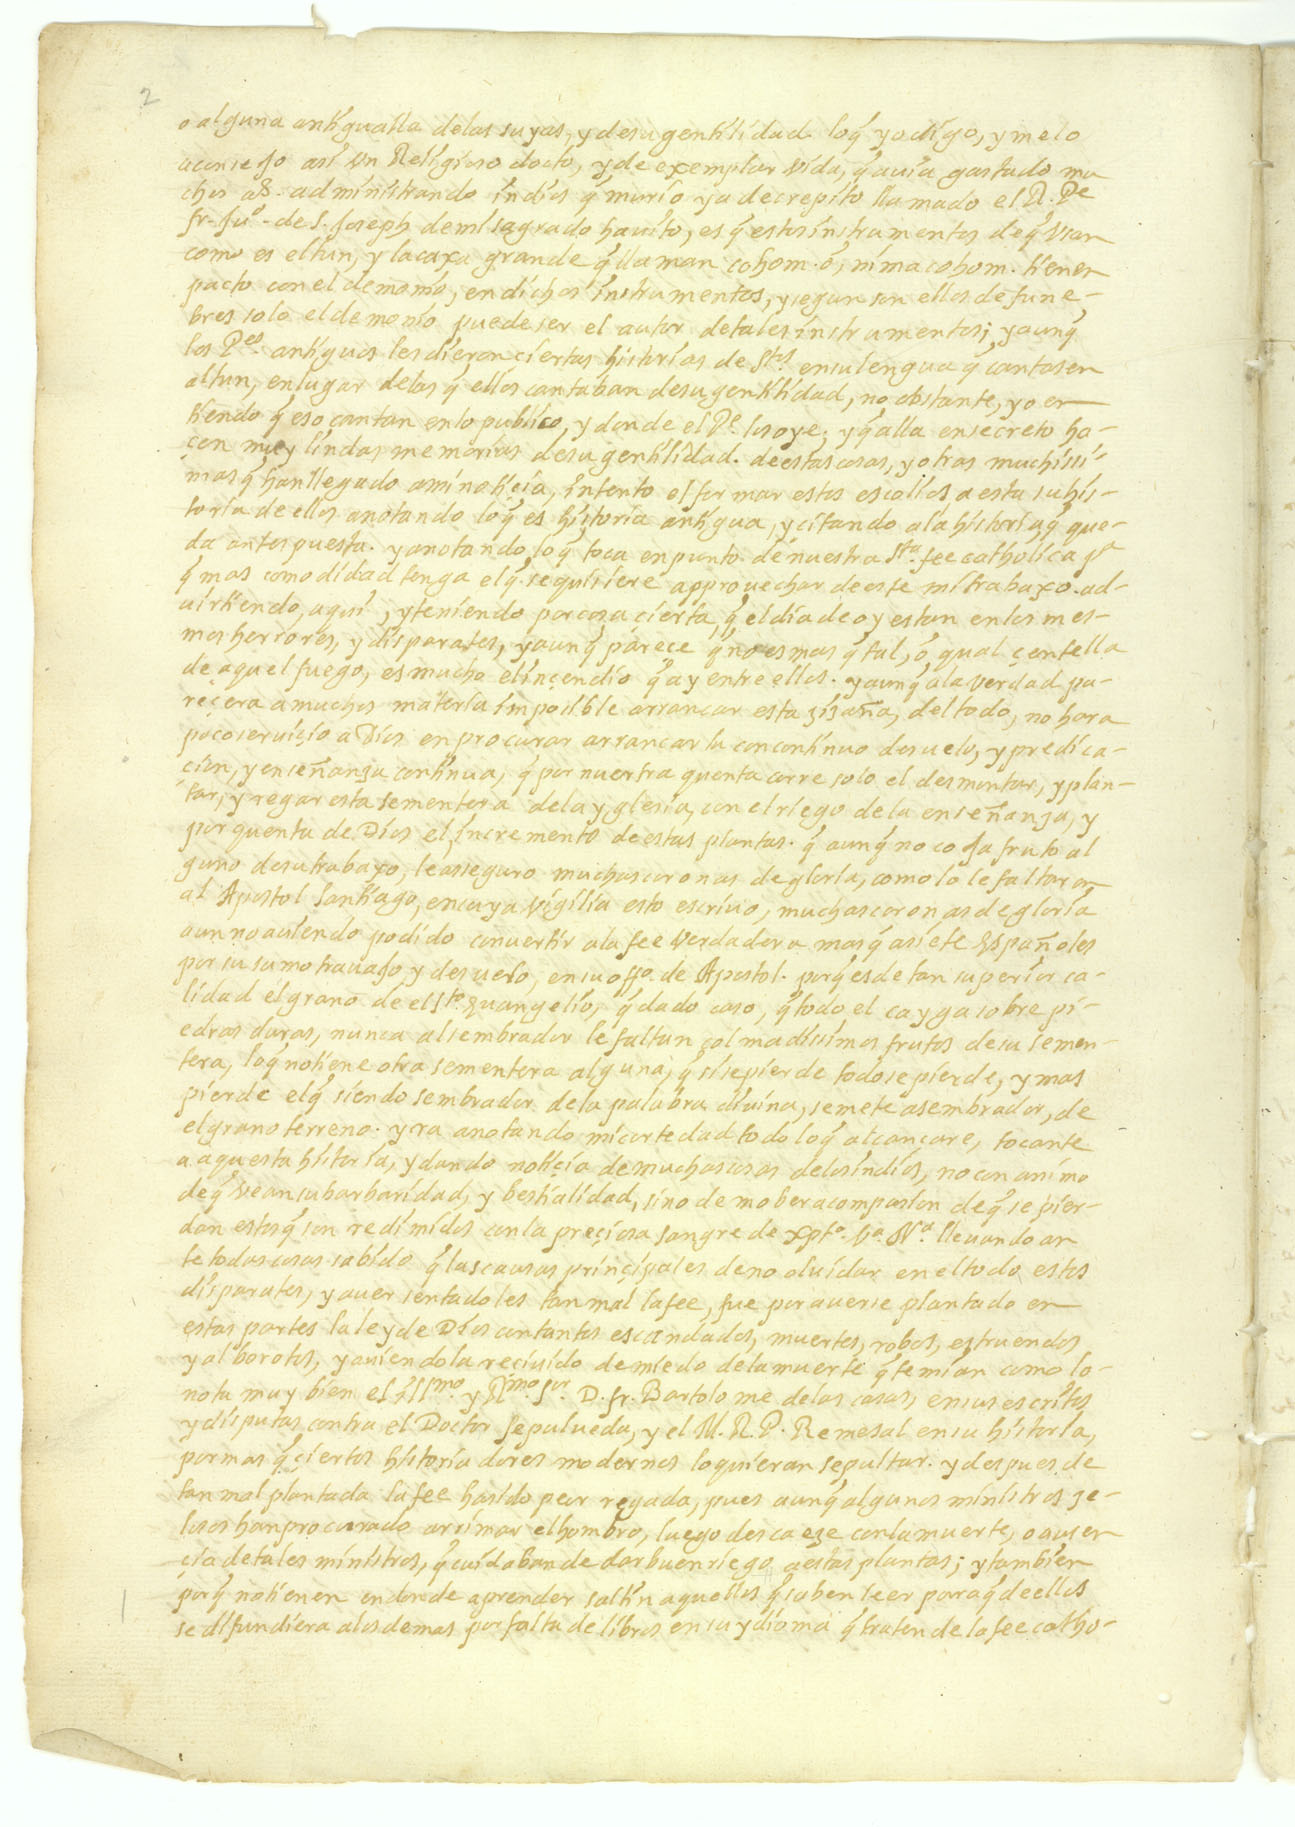 2
o alguna antigualla de las suyas, y de su gentilidad. loq̃ yo digo, y me lo
aconsejo asi vn Religioso docto, y de exemplar vida, q̃ avia gastado mu
chos as. administrando indios q̃ murio ya decrepito llamado el R. Pe
fr. Juo. de S. Joseph de mi sagrado havito, es q̃ estos instrumentos de q̃ vsan
como es el tun, y la caxa grande q̃ llaman cohom. o, nima cohom. tienen
pacto con el demonio, en dichos instrumentos, y segun son ellos de fune-
bres solo el demonio puede ser el autor de tales instrumentos; y aunq̃
los Pes. antiguos les dieron ciertas historias de Stos. en su lengua q̃ cantasen
al tun, en lugar de las q̃ ellos cantaban de su gentilidad, no obstante, yo en
tiendo q̃ eso cantan en lo publico, y donde el Pe. los oye; y q̃ alla en secreto ha-
çen muy lindas memorias de su gentilidad. de estas cosas, y otras muchissi-
mas q̃ han llegado a mi notiçia, intento el formar estos escolios a esta su his-
toria de ellos anotando loq̃ es historia antigua, y citando a la historia q̃ que-
da antes puesta. y anotando loq̃ toca en punto de nuestra Sta. fee catholica pa
q̃ mas comodidad tenga el q̃ se quisiere approvechar de este mi trabaxo. ad-
virtiendo, aqui, y teniendo por cosa cierta, q̃ el dia de oy estan en los mes-
mos herrores, y disparates, y aunq̃ parece q̃ no es mas q̃ tal, o, qual çentella
de aquel fuego, es mucho el inçendio q̃ ay entre ellos. y aunq̃ a la verdad pa-
reçera a muchos materia imposible arrancar esta zizaña, del todo, no hara
poco serviçio a Dios en procurar arrancarla con continuo desvelo, y predica-
çion, y enseñanza continua, q̃ por nuestra quenta corre solo el desmontar, y plan-
tar, y regar esta sementera de la yglesia, con el riego de la enseñanza, y
por quenta de Dios el incremento de estas plantas. q̃ aunq̃ no coja fruto al
guno de su trabaxo, le asseguro muchas coronas de gloria, como no le faltaron
al Apostol Santiago, en cuya vigilia esto escrivo, muchas coronas de gloria
aun no aviendo podido convertir a la fee verdadera mas q̃ a siete Españoles
por su sumo travajo y desvelo, en su offo. de Apostol. porq̃ es de tan superior ca-
lidad el grano de el Sto. Evangelio, q̃ dado caso, q̃ todo el cayga sobre pi-
edras duras, nunca al sembrador le faltan colmadissimos frutos de su semen-
tera, loq̃ no tiene otra sementera alguna, q̃ si se pierde todo se pierde, y mas
pierde el q̃ siendo sembrador de la palabra divina, se mete a sembrador, de
el grano terreno. y ra anotando mi cortedad todo loq̃ alcançare, tocante
a aquesta historia, y dando notiçia de muchas cosas de los indios, no con animo
de q̃ vean su barbaridad, y bestialidad, sino de mober a compasion de q̃ se pier-
dan estos q̃ son redimidos con la preçiosa sangre de xpto. Va. Na. llevando an
te todas cosas sabido q̃ las causas prinçipales de no olvidar en el todo estos
disparates, y aver sentadoles tan mal la fee, fue por averse plantado en
estas partes la ley de Dios con tantos escandalos, muertes, robos, estruendos
y alborotos, y aviendola reçivido de miedo de la muerte q̃ temian como lo-
nota muy bien el Illmo. y Rmo. Sor. D. fr. Bartolome de las casas, en sus escritos
y disputas contra el Doctor Sepulveda, y el M. R. P. Remesal en su historia,
por mas q̃ çiertos historiadores modernos lo quieran sepultar. y despues de
tan mal plantada la fee ha sido peor regada, pues aunq̃ algunos ministros ze-
losos han procurado arrimar el hombro, luego descaeze con la muerte, o ausen
çia de tales ministros, q̃ cuidaban de dar buen riego a estas plantas; y tambien
porq̃ no tienen en donde aprender saltin aquellos q̃ saben leer para q̃ de ellos
se difundiera a los demas por falta de libros en su ydioma q̃ traten de la fee catho-